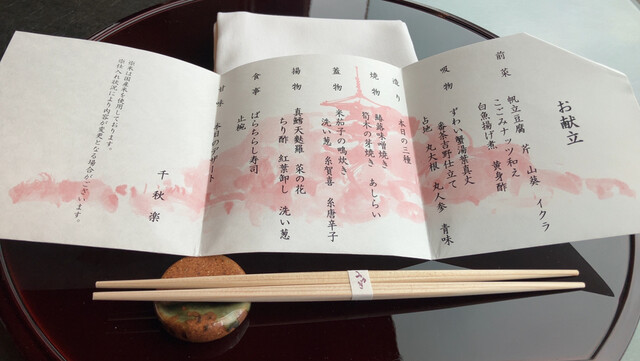 お献立
前菜
帆立豆腐 芹 山葵 イクラ
こごみナッツ和え 黄身酢
白魚揚げ煮
吸物
ずわい蟹湯葉真丈
番茶吉野仕立て
占地 丸大根 丸人参 青味
造り
本日の三種
焼物
鰆蕗味噌焼き あしらい
筍木の芽焼き
蓋物
米茄子の鴫炊き
洗い葱 糸賀喜 糸唐辛子
揚物
真鱈天麩羅 菜の花
ちり酢 紅葉卸し 洗い葱
食事
ばらちらし寿司
止椀
甘味
本日のデザート
千秋楽
※米は国産米を使用しております。
※仕入れ状況により内容が変更となる場合がございます。